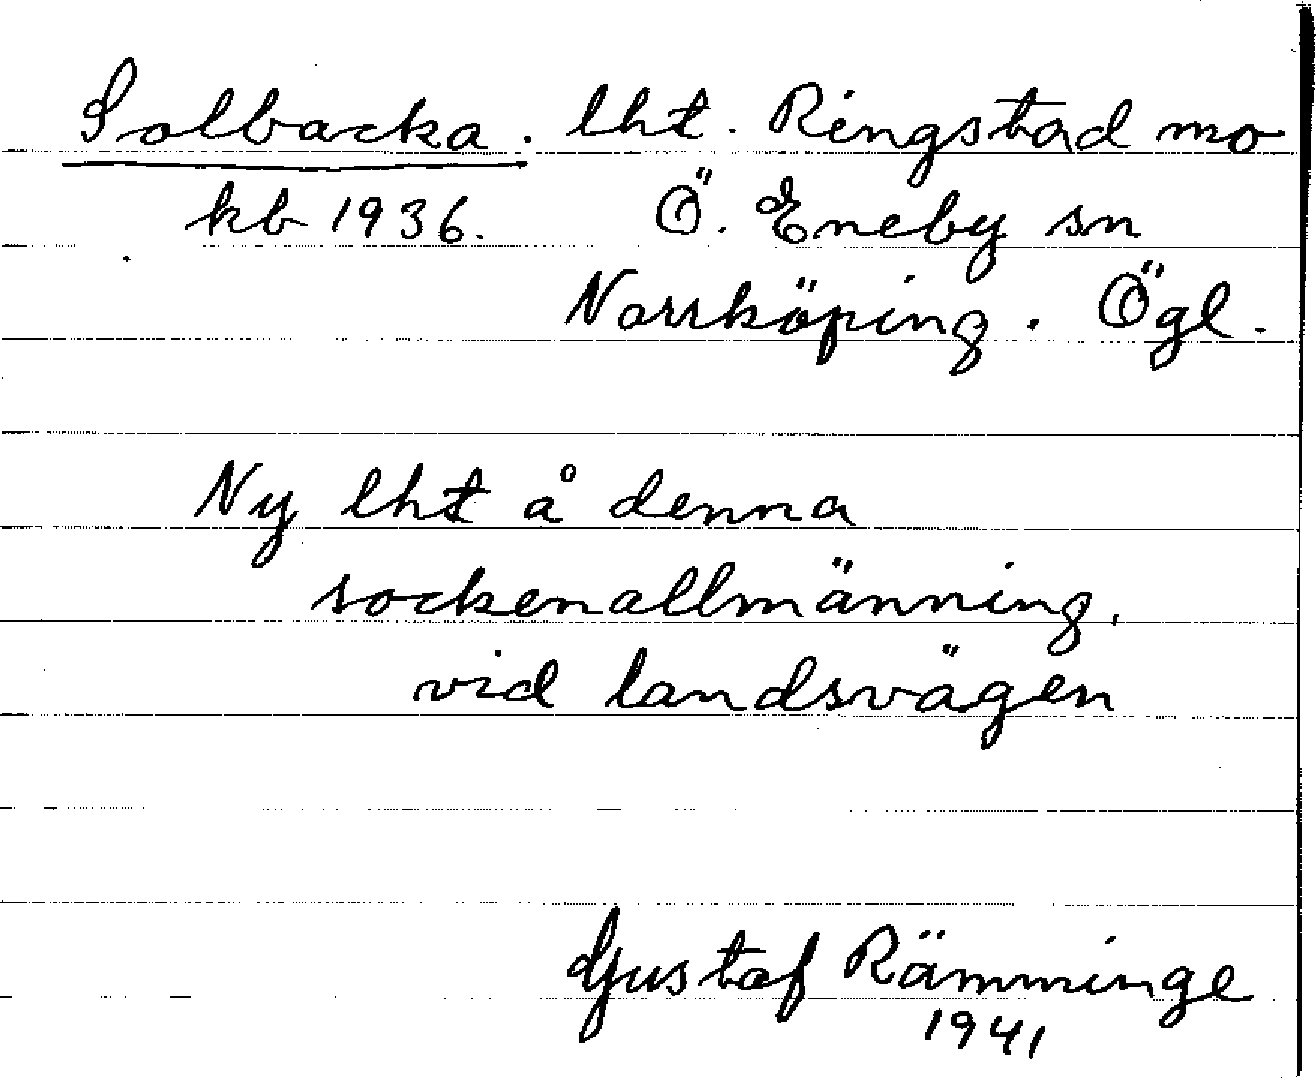 Solbacka. lht. Ringstad mo
kb 1936. Ö. Eneby sn
Norrköping. Ögl.
Ny lht å denna
sockenallmänning,
vid landsvägen
Gustaf Rämminge
1941